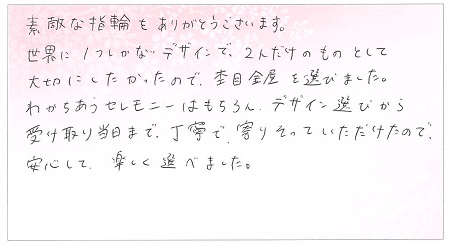 素敵な指輪をありがとうございます。
世界に1つしかないデザインで、2人だけのものとして
大切にしたかったので、杢目金屋を選びました。
わかちあうセレモニーはもちろん、デザイン選びから
受け取り当日まで、丁寧で、寄りそっていただけたので、
安心して、楽しく選べました。